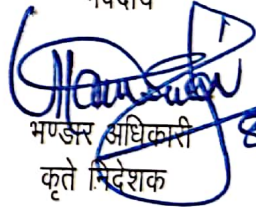 भवदीय
भण्डार अधिकारी
कृते निदेशक